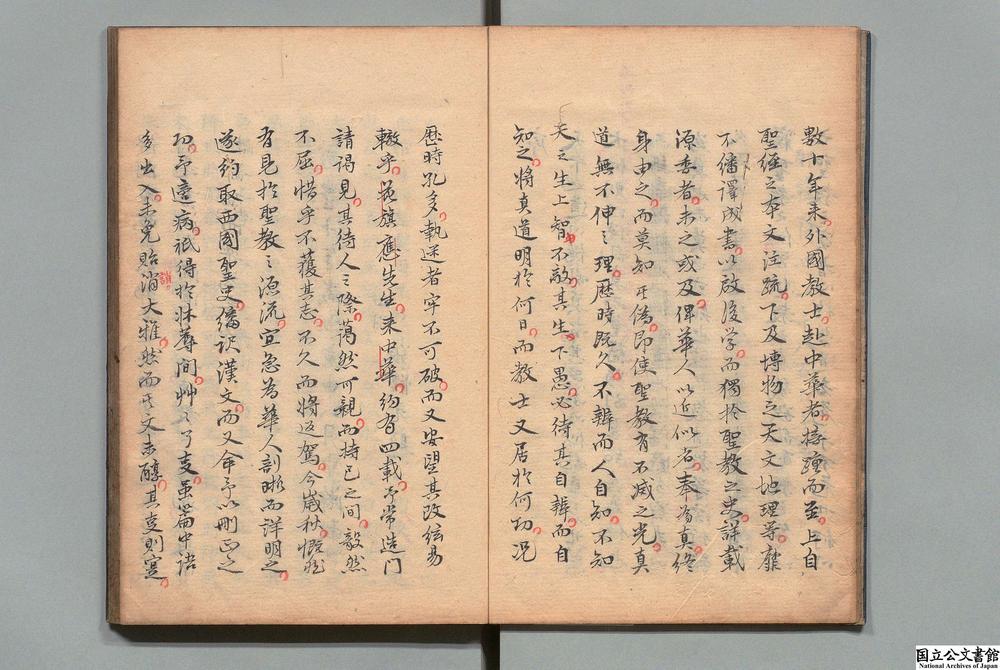 數十年来外國教士赴中華者接踵而至上自
聖經之本文注疏下及博物之天文地理等靡
不繙譯成書以啟後学而獨於聖教之史詳載
源委者未之或及俾華人以近似者奉为真終
身由之而莫知其偽即使聖教有不滅之光真
道無不伸之理歷時既久不辨而人自知不知
天之生上智不敵其生下愚必待其自辨而自
知之將真道明於何日而教士又居於何功况
歷時孔多執迷者牢不可破而又安望其改絃易
轍乎花旗應先生来中華約有四載予常造门
請謁見其待人之際藹然可親而持己之间毅然
不屈惜乎不獲其志不久而將返駕今歲秋慨然
有見於聖教之源流宜急为華人剖晰而詳明之
遂約取西國聖史繙訳漢文而又命予以刪正之
功予適病祇得於牀蓐间艸々了事虽篇中语
多出入未免貽消大雅然而其文未醇其事則實
誚
国立公文書館
National Archives of Japan